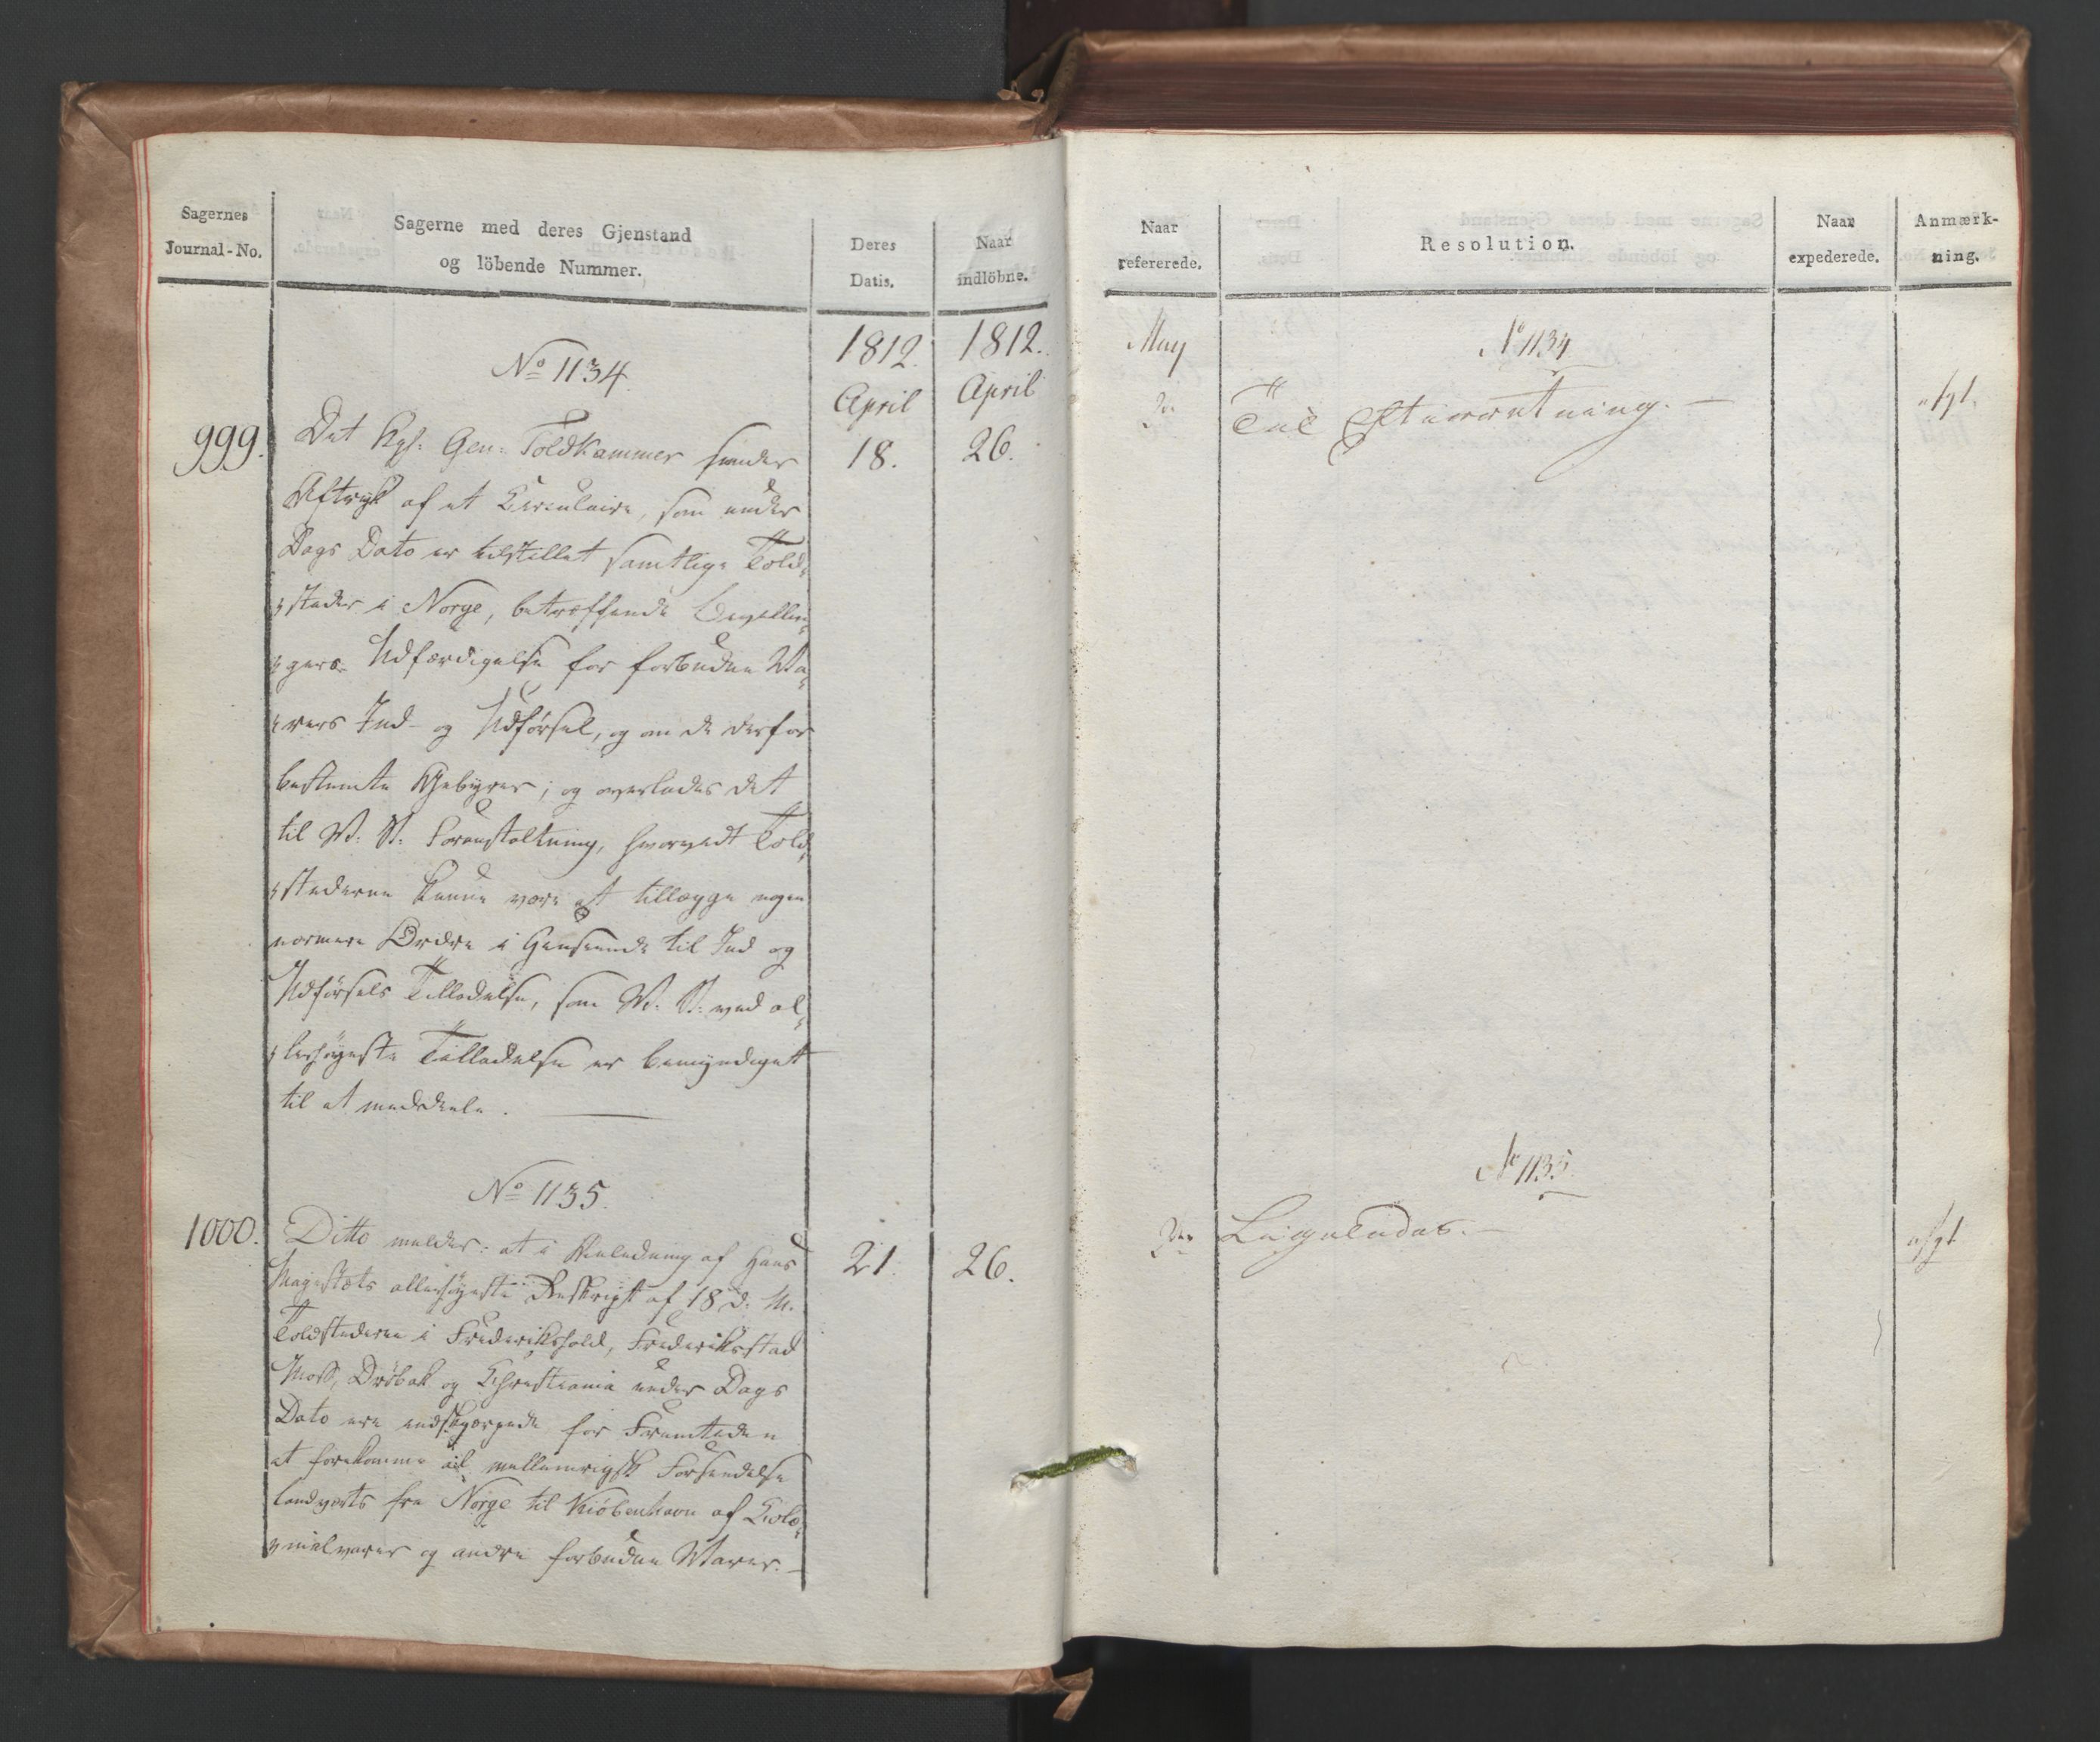 Sagernes
Journal-No.
Sagerne med deres Gjenstand
og löbende Nummer.
Deres
Datis.
Naar
indlöbne.
1812.
1812.
April
April
No 1134.
999.
18.
26.
Det Kgl: Gen: Toldkammer sender
Aftryk af et Circulaire, som under
Dags Dato er tilstillet samtlige Told-
steder i Norge, betræffende Bevillin-
gers Udfærdigelse for forbudne Va-
rers Ind- og Udførsel, og om de derfor
bestemte Gebyrer; og overlades det
til R. K. Foranstaltning, hvorvidt Told-
stederne kunne være at tillægge nogen
nærmere Ordre i Henseende til Ind og
Udførsels Tilladelse, som R. K. ved al-
lerhøyeste Tilladelse er bemyndiget
til at meddeele.
No 1135.
1000.
21.
26.
Ditto melder: at i Anledning af Hans
Majestæts allerhøyeste Reskript af 18 d. M.
Toldstederne i Frederikshald, Frederiksstad
Moss, Drøbak og Christiania under Dags
Dato ere indskjærpede for Fremtiden
at forekomme al mellemrigsk Forsendelse
landværts fra Norge til Kiøbenhavn af Colo-
nialvarer og andre forbudne Varer.
Naar
refererede.
Resolution.
Naar
expederede.
Anmærk-
ning.
May
No 1134
2den
Til Efterretning.
afgt.
No 1135.
2den
Ligeledes.
afgt